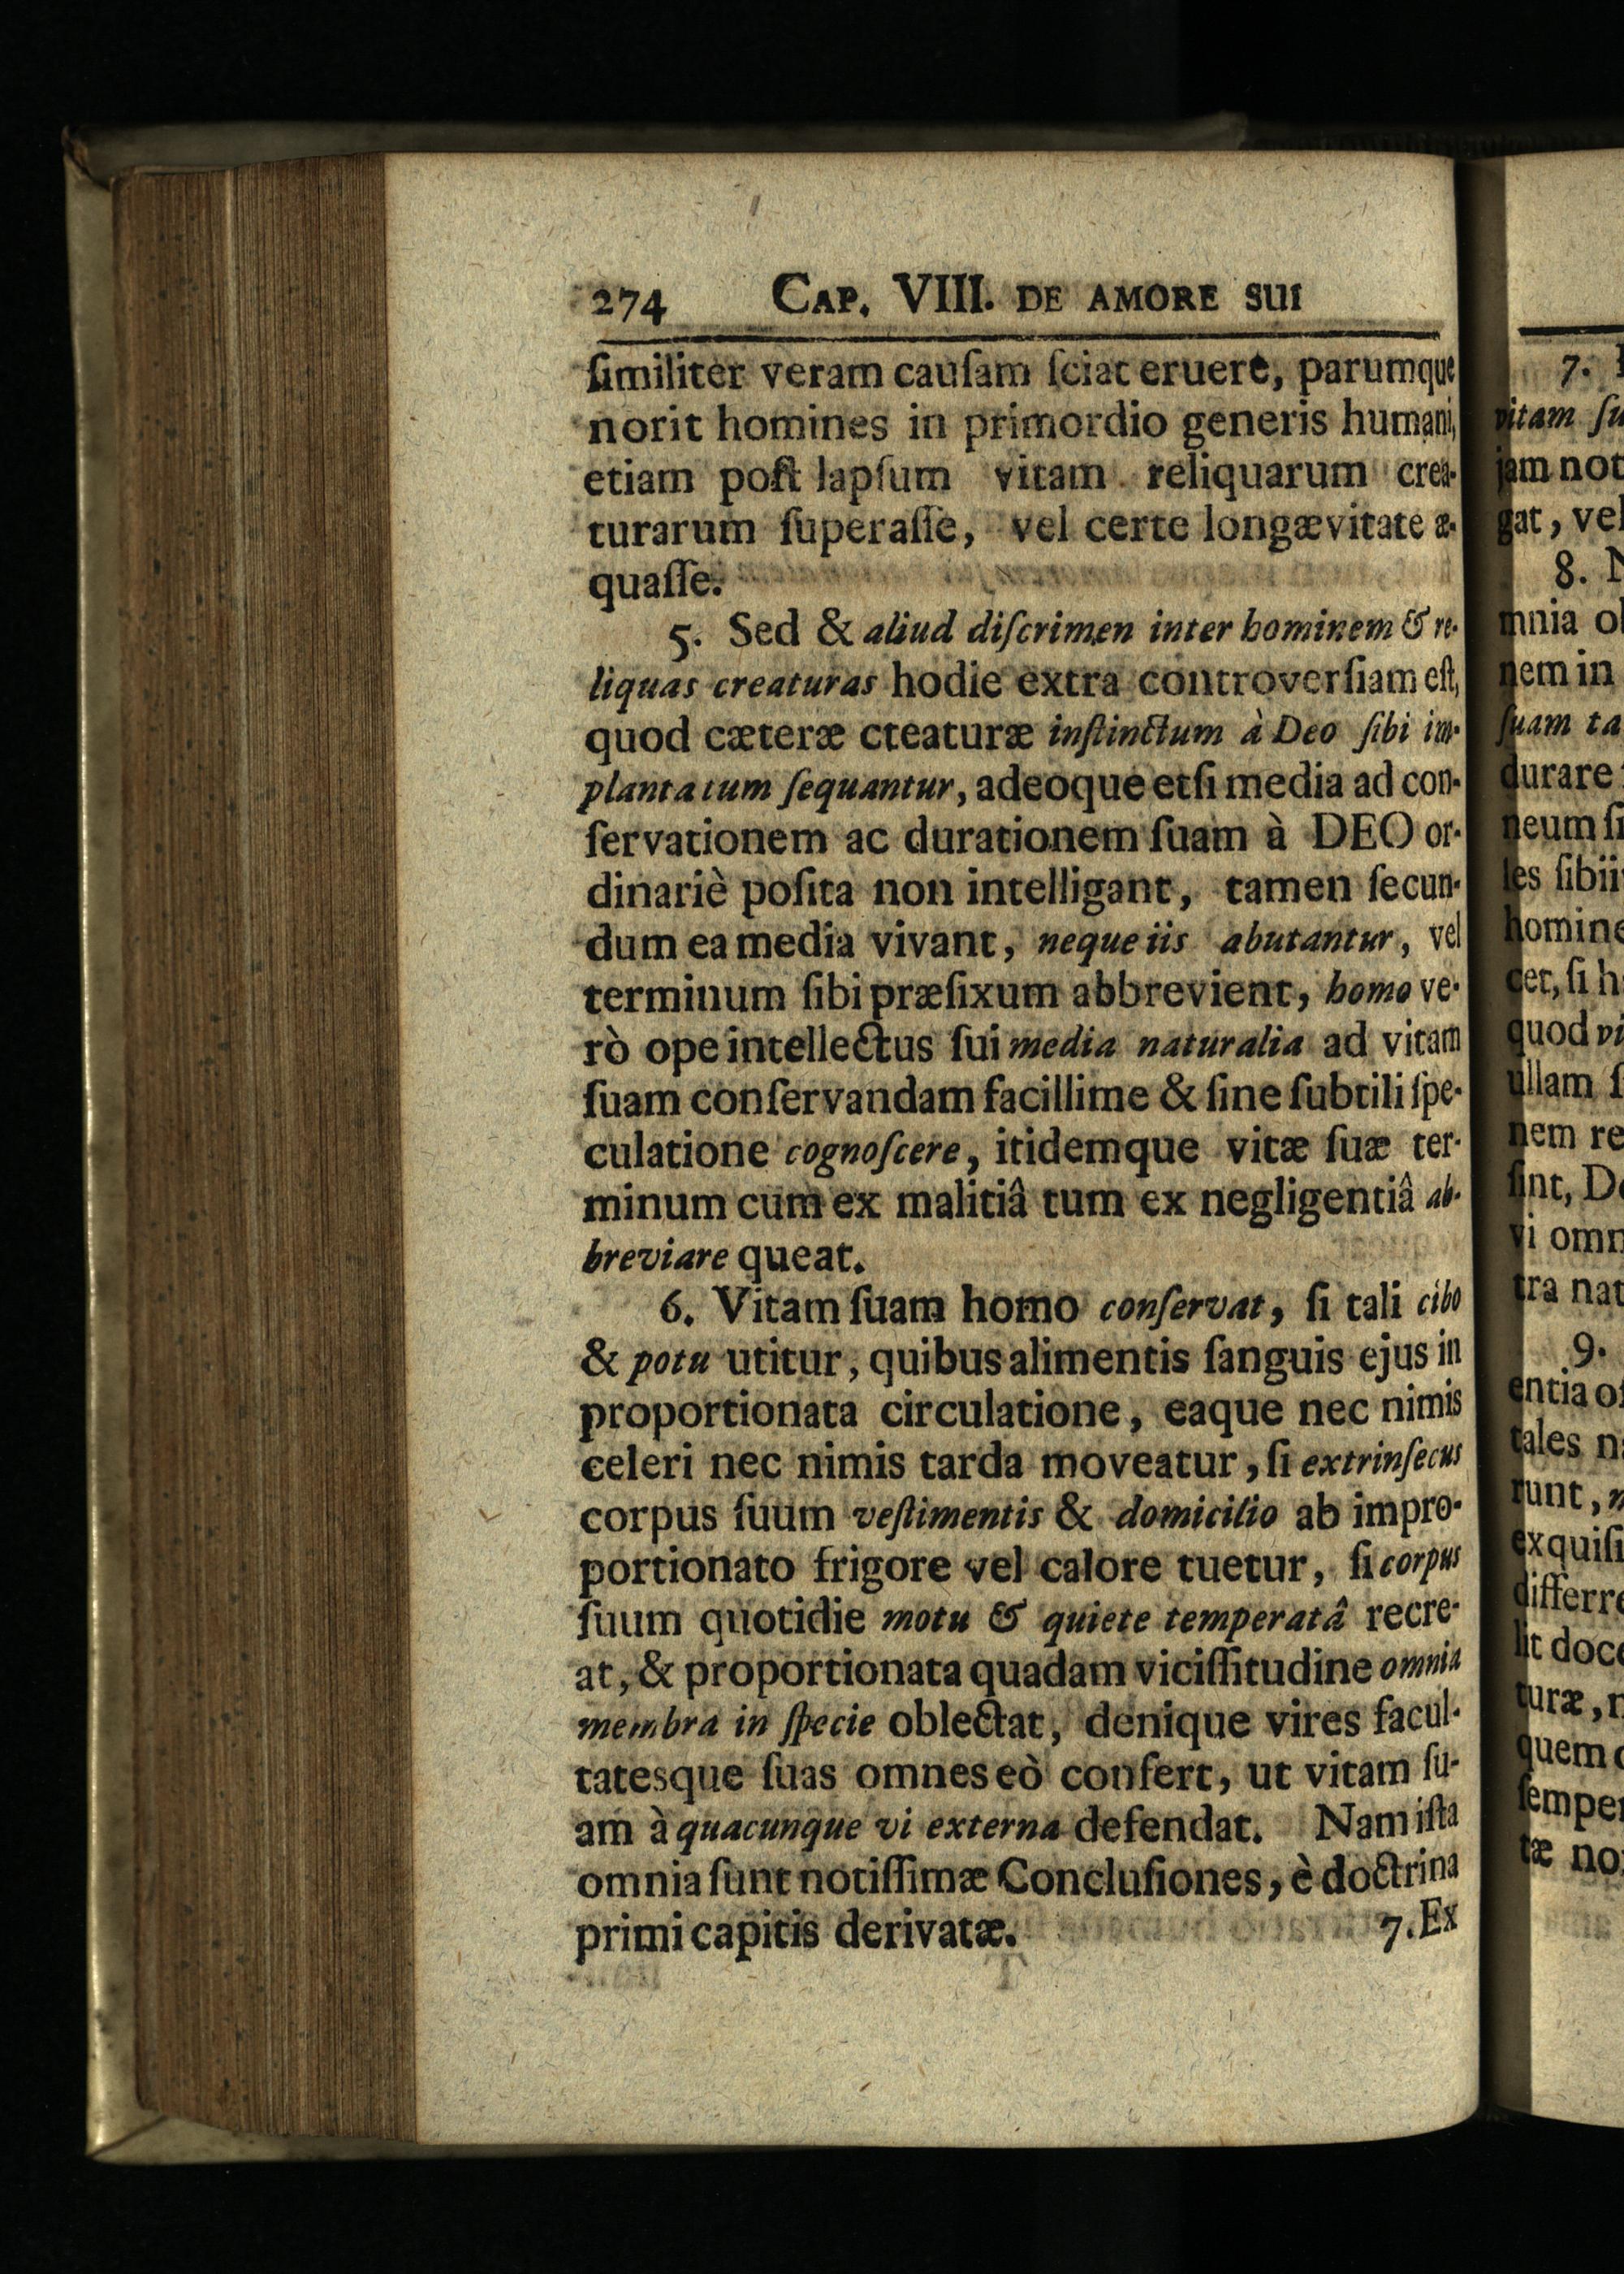 274 CAP. VIII. DE AMORE SUI
ſimiliter veram cauſam ſciat eruere, parumque
norit homines in primordio generis humani,
etiam poſt lapſum vitam reliquarum crea-
turarum ſuperaſſe, vel certe longævitate æ-
quaſſe.
5. Sed & aliud diſcrimen inter hominem & re-
liquas creaturas hodie extra controverſiam eſt,
quod cæteræ cteaturæ inſtinctum à Deo ſibi im-
plantatum ſequantur, adeoque etſi media ad con-
ſervationem ac durationem ſuam à DEO or-
dinariè poſita non intelligant, tamen ſecun-
dum ea media vivant, neque iis abutantur, vel
terminum ſibi præſixum abbrevient, homo ve-
rò ope intellectus ſui media naturalia ad vitam
ſuam conſervandam facillime & ſine ſubtili ſpe-
culatione cognoſcere, itidemque vitæ ſuæ ter-
minum cum ex malitiâ tum ex negligentiâ ab-
breviare queat.
6. Vitam ſuam homo conſervat, ſi tali cibo
& potu utitur, quibus alimentis ſanguis ejus in
proportionata circulatione, eaque nec nimis
celeri nec nimis tarda moveatur, ſi extrinſecus
corpus ſuum veſtimentis & domicilio ab impro-
portionato frigore vel calore tuetur, ſi corpus
ſuum quotidie motu & quiete temperatâ recre-
at, & proportionata quadam viciſſitudine omnia
membra in ſpecie oblectat, denique vires facul-
tatesque ſuas omnes eò confert, ut vitam ſu-
am à quacunque vi externa defendat. Nam iſta
omnia ſunt notiſſimæ Concluſiones, è doctrina
primi capitis derivatæ.
7. Ex
7.
vitam ſu
jam not
gat, vel
8. N
mnia ob
nem in
ſuam ta
durare
neum ſi
les ſibi
homine
cet, ſi h
quod vi
ullam ſ
nem re
ſint, De
vi omn
tra nat
9.
entia
tales n
runt,
exquiſi
differre
lit doce
turæ,
quem
ſemper
tæ no